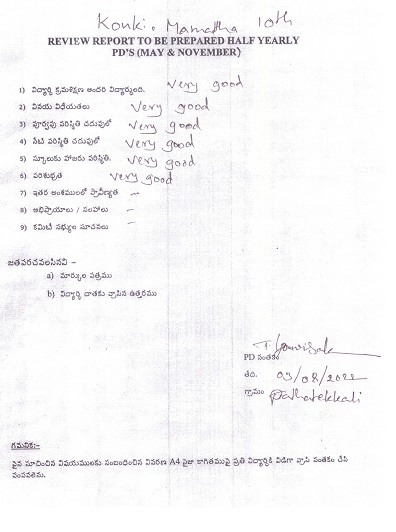 Konki. Mamatha 10th
REVIEW REPORT TO BE PREPARED HALF YEARLY
PD'S (MAY & NOVEMBER)
1) విద్యార్ధి క్రమశిక్షణ అందరి విద్యార్థులది. very good
2) వినయ విధేయతలు very good
3) పూర్వపు పరిస్థితి చదువులో very good
4) నేటి పరిస్థితి చదువులో very good
5) స్కూలుకు హాజరు పరిస్థితి. very good
6) పరిశుభ్రత very good
7) ఇతర అంశములలో ప్రావీణ్యత –
8) అభిప్రాయాలు / సలహాలు –
9) కమిటీ సభ్యుల సూచనలు –
జతపరచవలసినవి –
a) మార్కుల పత్రము
b) విద్యార్ధి దాతకు వ్రాసిన ఉత్తరము
PD సంతకం
తేది. 03/08/2022
గ్రామం Pathatekkali
గమనిక:-
పైన సూచించిన విషయములకు సంబంధించిన వివరణ A4 సైజు కాగితముపై ప్రతి విద్యార్ధికి విడిగా వ్రాసి సంతకం చేసి
పంపవలెను.